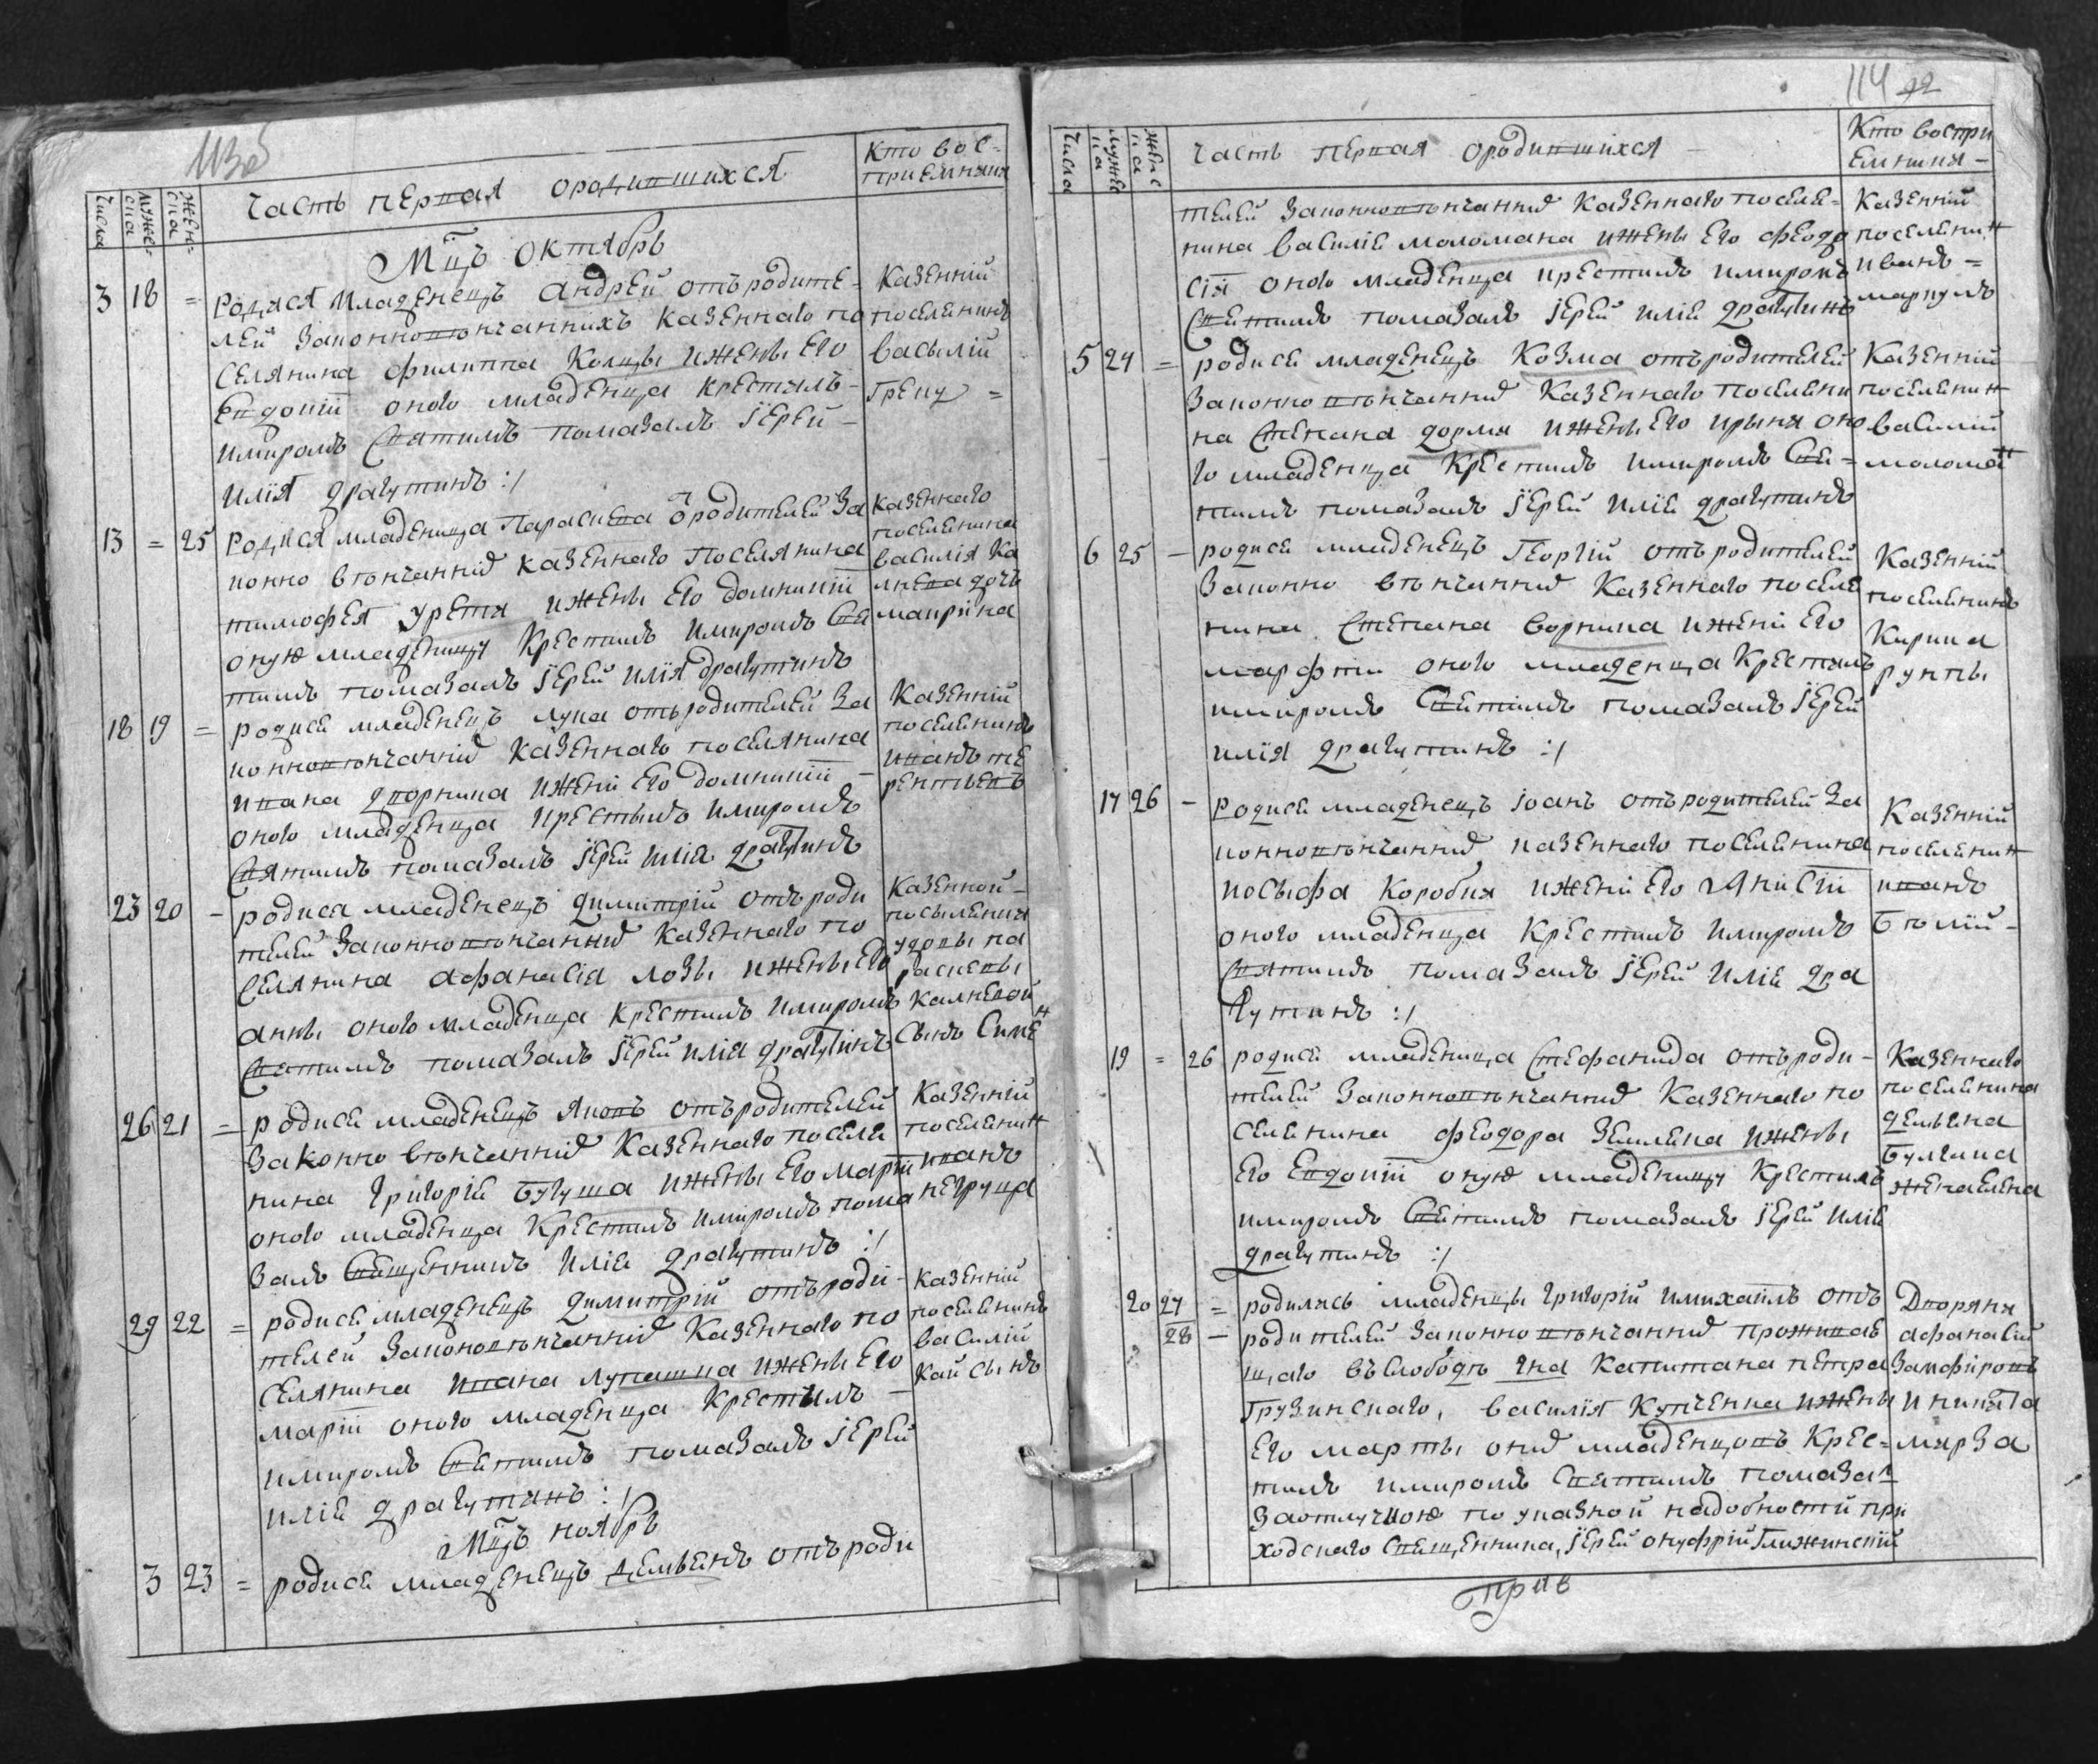 113об
Числа
мужеска
женска
Часть первая о родившихся
Кто вос=
приемники
Мцъ октябрь
3 18 = Родися младенецъ Андрей отъ родите=
лей законновѣнчаннихъ казеннаго по
селянина Филиппа Колцы и жены его
Евдокіи оного младенца крестилъ
и миромъ святимъ помазалъ Іерей
Илія Драгутинъ :/
Казенній
поселенинъ
Васылій
Греку =
13 = 25 Родися младеница Параскева ѿ родителей за
конно вѣнчаннихъ казеннаго поселянина
Тимофея Урета и жены его Домникіи
оную младеницу крестилъ и миромъ свя
тимъ помазалъ Іерей Илія Драгутинъ
казеннаго
поселенина
Василія Ка
лнева дочь
Маирика
18 19 = родися младенецъ Лука отъ родителей за
конновѣнчанних казеннаго поселянина
Ивана Дворника и жени его Домникіи
оного младенца крестилъ и миромъ
святимъ помазалъ Іерей Илія Драгутинъ
Казенній
поселенинъ
Иванъ Те
рентьевъ
23 20 - родися младенецъ Димитрій отъ роди
телей законновѣнчанних казеннаго по
селянина Афанасія Лозы и жены его
Анны оного младенца крестилъ и миромъ
святимъ помазалъ Іерей Илія Драгутинъ
Казенной
посыленки
удовы Па
раскевы
Калневой
сынъ Симеѡн
26 21 = родися младенецъ Яковъ отъ родителей
законно вѣнчанних казеннаго поселя
нина Григорія Бугуша и жены его Маріи
оного младенца крестилъ и миромъ пома
залъ священникъ Илія Драгутинъ :/
Казенній
поселенин
Иванъ
Негруца
29 22 = родися младенецъ Димитрій отъ роди-
телей законовѣнчанних казеннаго по
селянина Ивана Лупашка и жены его
Маріи оного младенца крестилъ
и миромъ святимъ помазалъ Іерей
Илія Драгутинъ :/
казенній
поселенинъ
Василій
Кайсынъ
Мцъ ноябрь
3 23 = родися младенецъ Демьянъ отъ роди
114 92
Числа
мужеска
женска
Часть первая о родившихся
Кто воспри
емники
телей законновѣнчанних казеннаго поселе=
нина Василіе Моломана и жены его Феодо
сіи оного младенца крестилъ и миромъ
святимъ помазалъ Іерей Иліе Драгутинъ
Казенній
поселенин
Иванъ =
Маркулъ
5 24 = родися младенецъ Козма отъ родителей
законно вѣнчанних казеннаго поселени
на Степана Дормя и жены его Ирыни оно
го младенца крестилъ и миромъ свя=
тимъ помазалъ Іерей Иліе Драгутинъ
Казенній
поселенин
Василій
Моломан
6 25 - родися младенецъ Георгій отъ родителей
законно вѣнчанних казеннаго поселе
нина Степана Ворника и жени его
Марфти оного младенца крестилъ
и миромъ святимъ помазалъ Іерей
Илія Драгутинъ :/
Казенній
поселенинъ
Кирила
Рунты
17 26 - родися младенецъ Іоанъ отъ родителей за
конновѣнчанних казеннаго поселенина
Иосыфа Коробки и жени его Анисіи
оного младенца крестилъ и миромъ
святимъ помазалъ Іерей Иліе Дра
гутинъ :/
Казенній
поселенин
Иванъ
Бѣлій
19 = 26 родися младеница Стефанида отъ роди-
телей законновѣнчанних казеннаго по
селенина Феодора Земляка и жены
его Евдокіи оную младеницу крестилъ
и миромъ святимъ помазалъ Іерей Иліе
Драгутинъ :/
казеннаго
поселенина
Демьяна
Булгака
жена Елена
20 27 = родились младенцы Григорій и Михаилъ отъ
28 - родителей законно вѣнчанних проживаю
щаго въ слободѣ гна капитана Петра
Грузинскаго, Василія Купченка и жены
его Марты оних младенцовъ крес=
тилъ и миромъ святимъ помазал
за отлучкою по указной надобностѣ при
ходскаго священника, Іерей Онуфрій Глижинскій
Дворяни
Афанасій
Замфировъ
и Никита
Мирза
прив